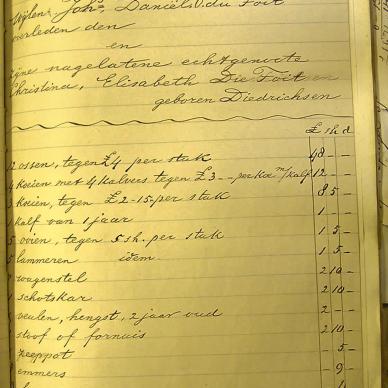 Wijlen Johs Daniel du Toit
overleden den
en
zijne nagelatene echtgenoote
Christina, Elisabeth Du Toit
geboren Diedrichsen
£ sh d
12 ossen, tegen £4 per stuk 48 - -
4 koeien met 4 kalvers tegen £3 - - per koe m/kalf 12 - -
koeien, tegen £2-15- per stuk 8 5 -
kalf van 1 jaar 1 - -
5 ooien, tegen 5 sh. per stuk 1 5 -
5 lammeren idem 1 5 -
wagenstel 2 10 -
1 schotskar 2 10 -
veulen, hengst, 2 jaar oud 2 - -
stoof of fornuis 2 10 -
zeeppot - 5 -
emmers - 9 -